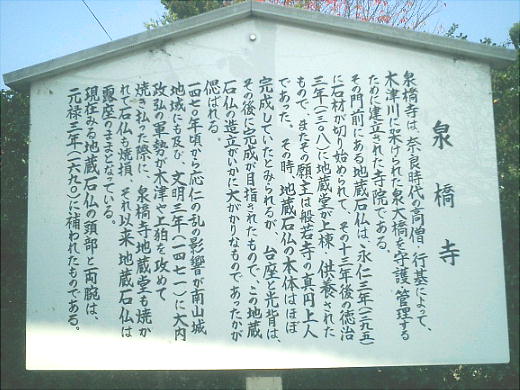 泉橋寺
泉橋寺は、奈良時代の高僧・行基によって、
木津川に架けられた泉大橋を守護・管理する
ために建立された寺院である。
その門前にある地蔵石仏は、永仁三年(一二九五)
に石材が切り始められて、その十三年後の徳治
三年(一三〇八)に地蔵堂が上棟・供養された
もので、またその願主は般若寺の真円上人
であった。その時、地蔵石仏の本体はほぼ
完成していたとみられるが、台座と光背は、
その後に完成が目指されたもので、この地蔵
石仏の造立がいかに大がかりなものであったかが
偲ばれる。
一四七〇年頃から応仁の乱の影響が南山城
地域にも及び、文明三年(一四七一)に大内
政弘の軍勢が木津や上狛を攻めて
焼き払った際に、泉橋寺地蔵堂も焼か
れて石仏も焼損、それ以来、地蔵石仏は
露座のままとなっている。
現在みる地蔵石仏の頭部と両腕は、
元禄三年(一六九〇)に補われたものである。